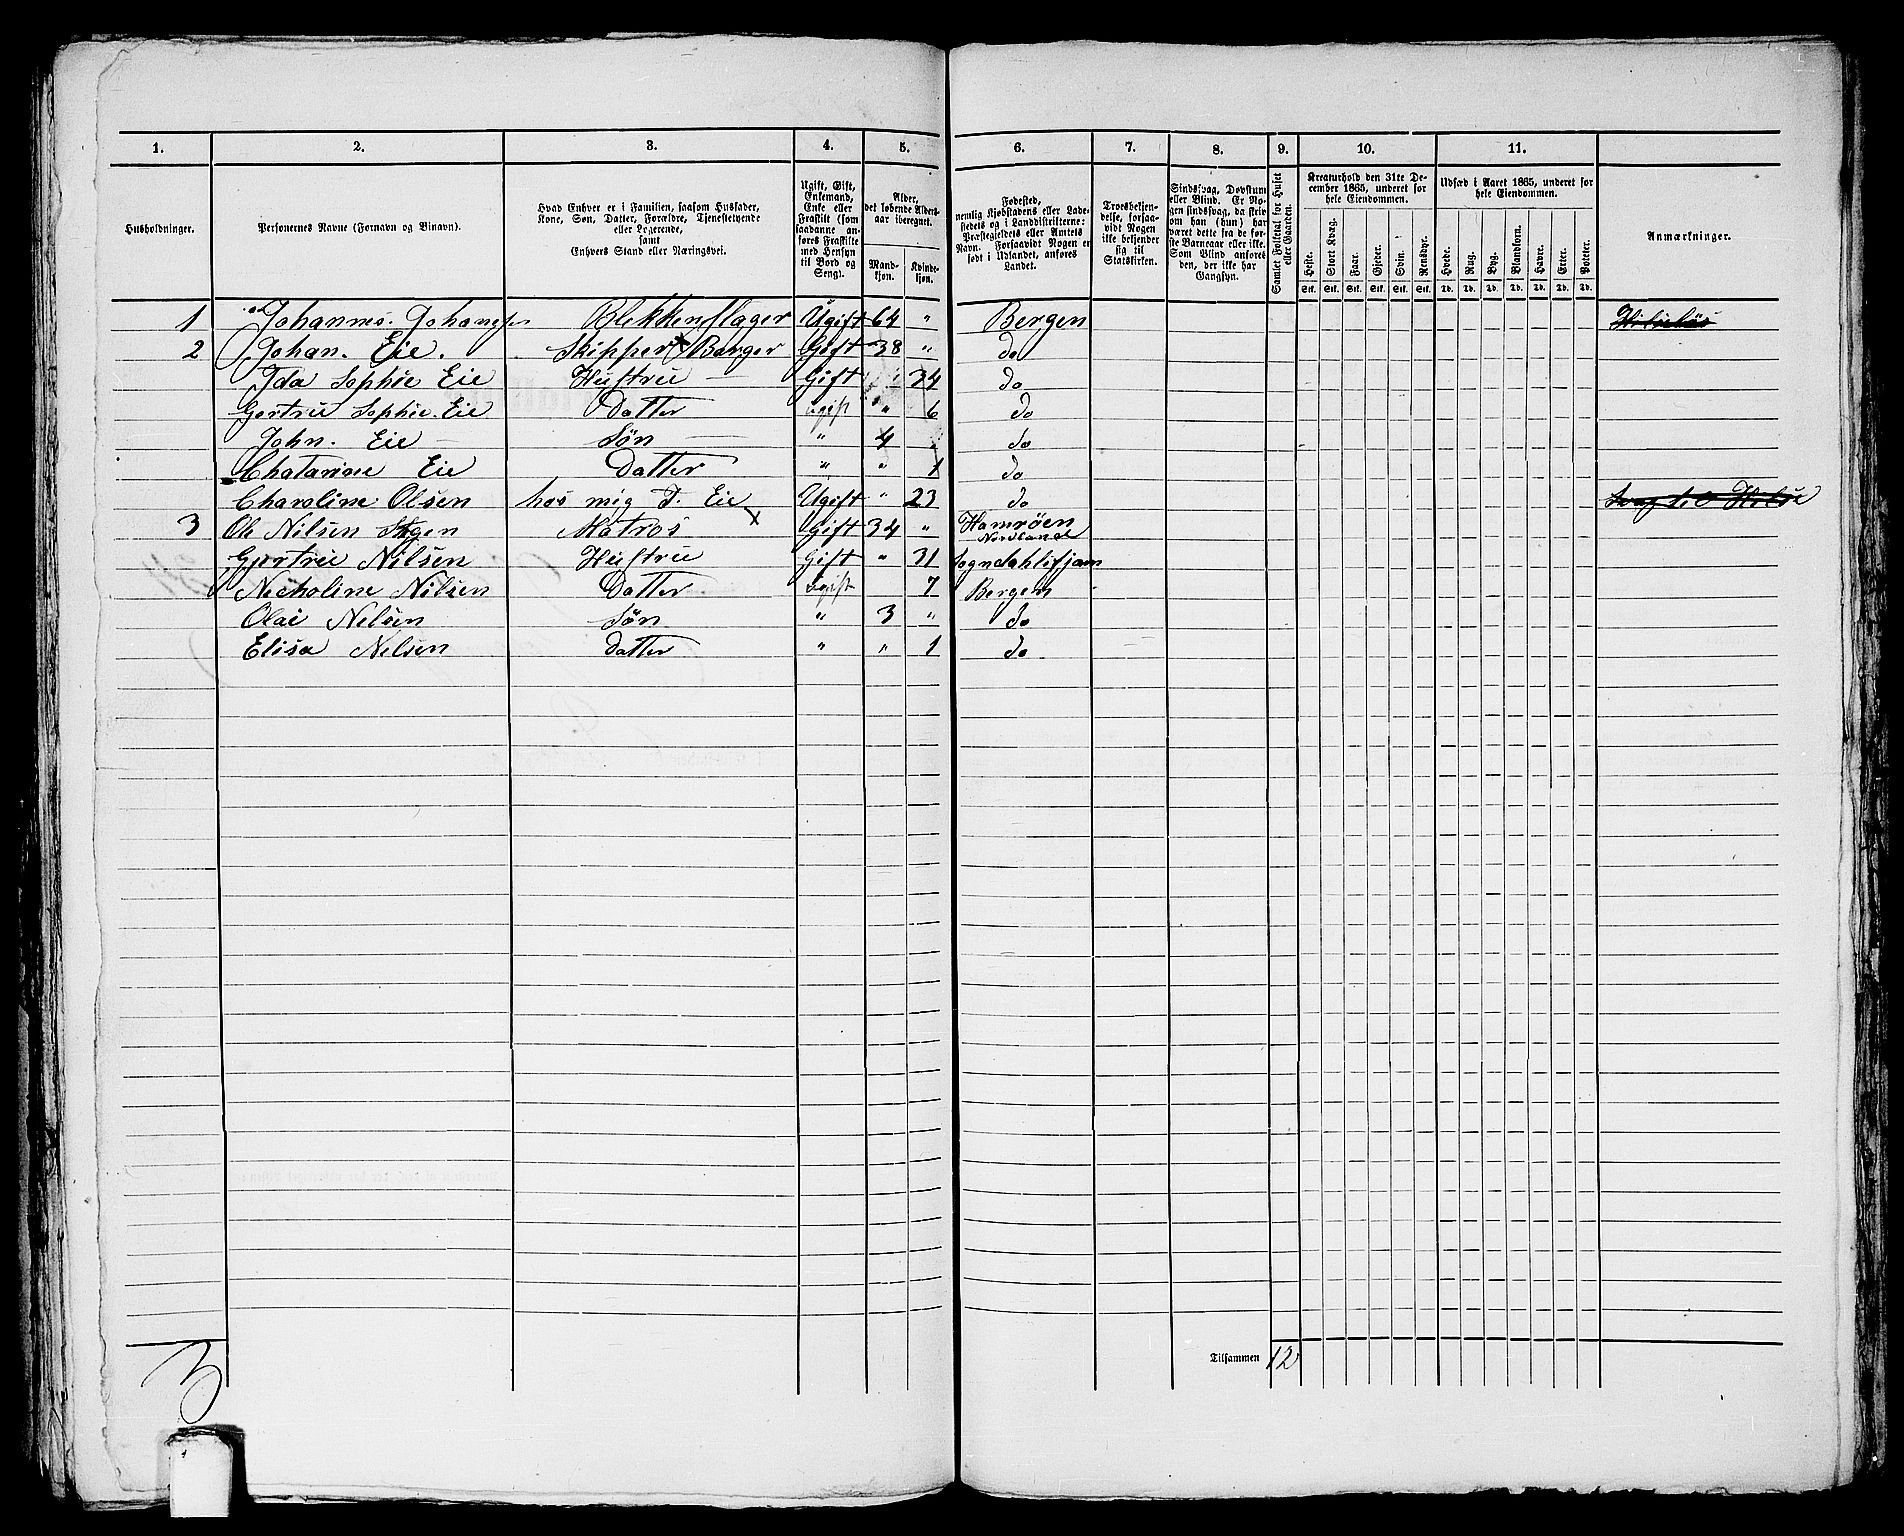 1. 2. 3. 4. 5. 6. 7. 8. 9. 10. 11.
Husholdninger.
Personernes Navne (Fornavn og Binavn).
Hvad Enhver er i Familien, saasom Husfader,
Kone, Søn, Datter, Forældre, Tjenestetyende
eller Logerende,
samt
Enhvers Stand eller Næringsvei.
Ugift, Gift,
Enkemand,
Enke eller
Fraskilt (som
saadanne an-
føres Fraskilte
med Hensyn
til Bord og
Seng).
Alder,
det løbende Alders-
aar iberegnet.
Mand-
kjøn.
Kvinde-
kjøn.
Fødested,
nemlig Kjøbstadens eller Lade-
stedets og i Landdistrikterne:
Præstegjeldets eller Amtets
Navn. Forsaavidt Nogen er
født i Udlandet, anføres
Landet.
Troesbekjen-
delse, forsaa-
vidt Nogen
ikke bekjender
sig til
Statskirken.
Sindssvag, Døvstum
eller Blind. Er No-
gen sindssvag, da skriv
om han (hun) har
været dette fra de før-
ste Barneaar eller ikke.
Som Blind anføres
den, der ikke har
Gangsyn.
Samlet Folketal for Huset
eller Gaarden.
Kreaturhold den 31te De-
cember 1865, underet for
hele Eiendommen.
Heste. Stort Kvæg. Faar. Gjeder. Svin. Rensdyr.
Stk. Stk. Stk. Stk. Stk. Stk.
Udsæd i Aaret 1865, underet for
hele Eiendommen.
Hvede. Rug. Byg. Blandkorn. Havre. Erter. Poteter.
Td. Td. Td. Td. Td. Td. Td.
Anmærkninger.
1 Johannes Johanes Blekkenslager Ugift 64 " Bergen
2 Johan. Eie. Skipper Borger Gift 38 " do
Ida Sophie Eie Hustrue Gift " 34 do
Gertrue Sophie. Eie Datter ugift " 6 do
John. Eie Søn " 4 " do
Chatarine Eie Datter " " 1 do
Charoline Olsen hos mig J. Eie Ugift " 23 do
3 Ole Nilsen Matros Gift 34 " Hamrøen
Nordlande
Gjertrue Nilsen Hustrue Gift " 31
Nicholine Nilsen Datter ugift 7 Bergen
Olai Nilsen Søn " 3 " do
Elisa Nilsen Datter " " 1 do
3
Tilsammen 12